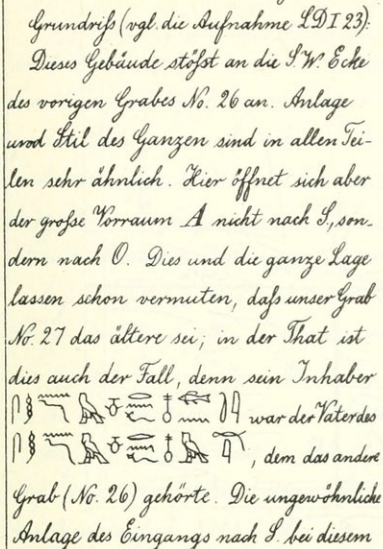 Grundriſs (vgl. die Aufnahme LD I 23):
Dieses Gebäude stöſst an die S.W. Ecke
des vorigen Grabes No. 26 an. Anlage
und Stil des Ganzen sind in allen Tei-
len sehr ähnlich. Hier öffnet sich aber
der groſse Vorraum A nicht nach S., son-
dern nach O. Dies und die ganze Lage
lassen schon vermuten, daſs unser Grab
No. 27 das ältere sei; in der That ist
dies auch der Fall, denn sein Inhaber
war der Vater des
, dem das andere
Grab (No. 26) gehörte. Die ungewöhnliche
Anlage des Eingangs nach S. bei diesem